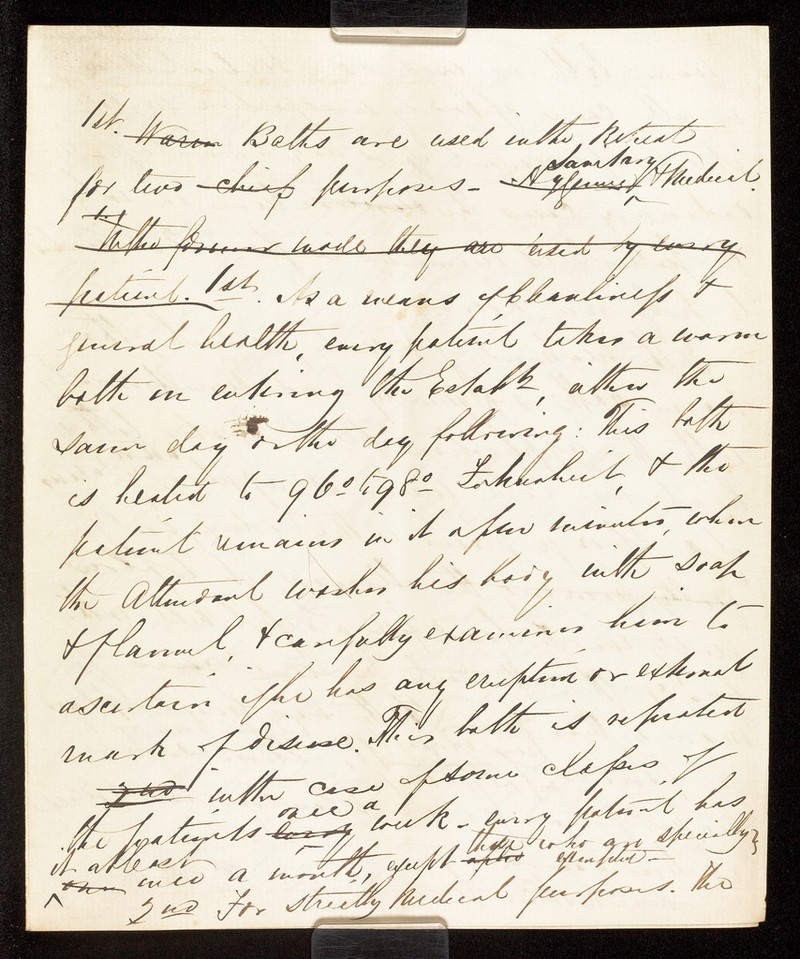 1st. Warm Baths are used in the Retreat
for two chief purposes - Hygienic Sanitary & Medical.
In the former mode they are used by every
patient. 1st. As a means of Cleanliness &
general health, every patient takes a warm
bath on entering the Establt, either the
same day or the day following: This bath
is heated to 96° to 98° Fahrenheit, & the
patient remains in it a few minutes, when
the Attendant washes his body with soap
& flannel, & carefully examines him to
ascertain if he has any eruption or external
mark of disease. This bath is repeated
2nd in the case of some classes of
the patients every once a week - every patient has
it at least once a month, except those who are specially
exempted -
2nd For strictly Medical purposes. The